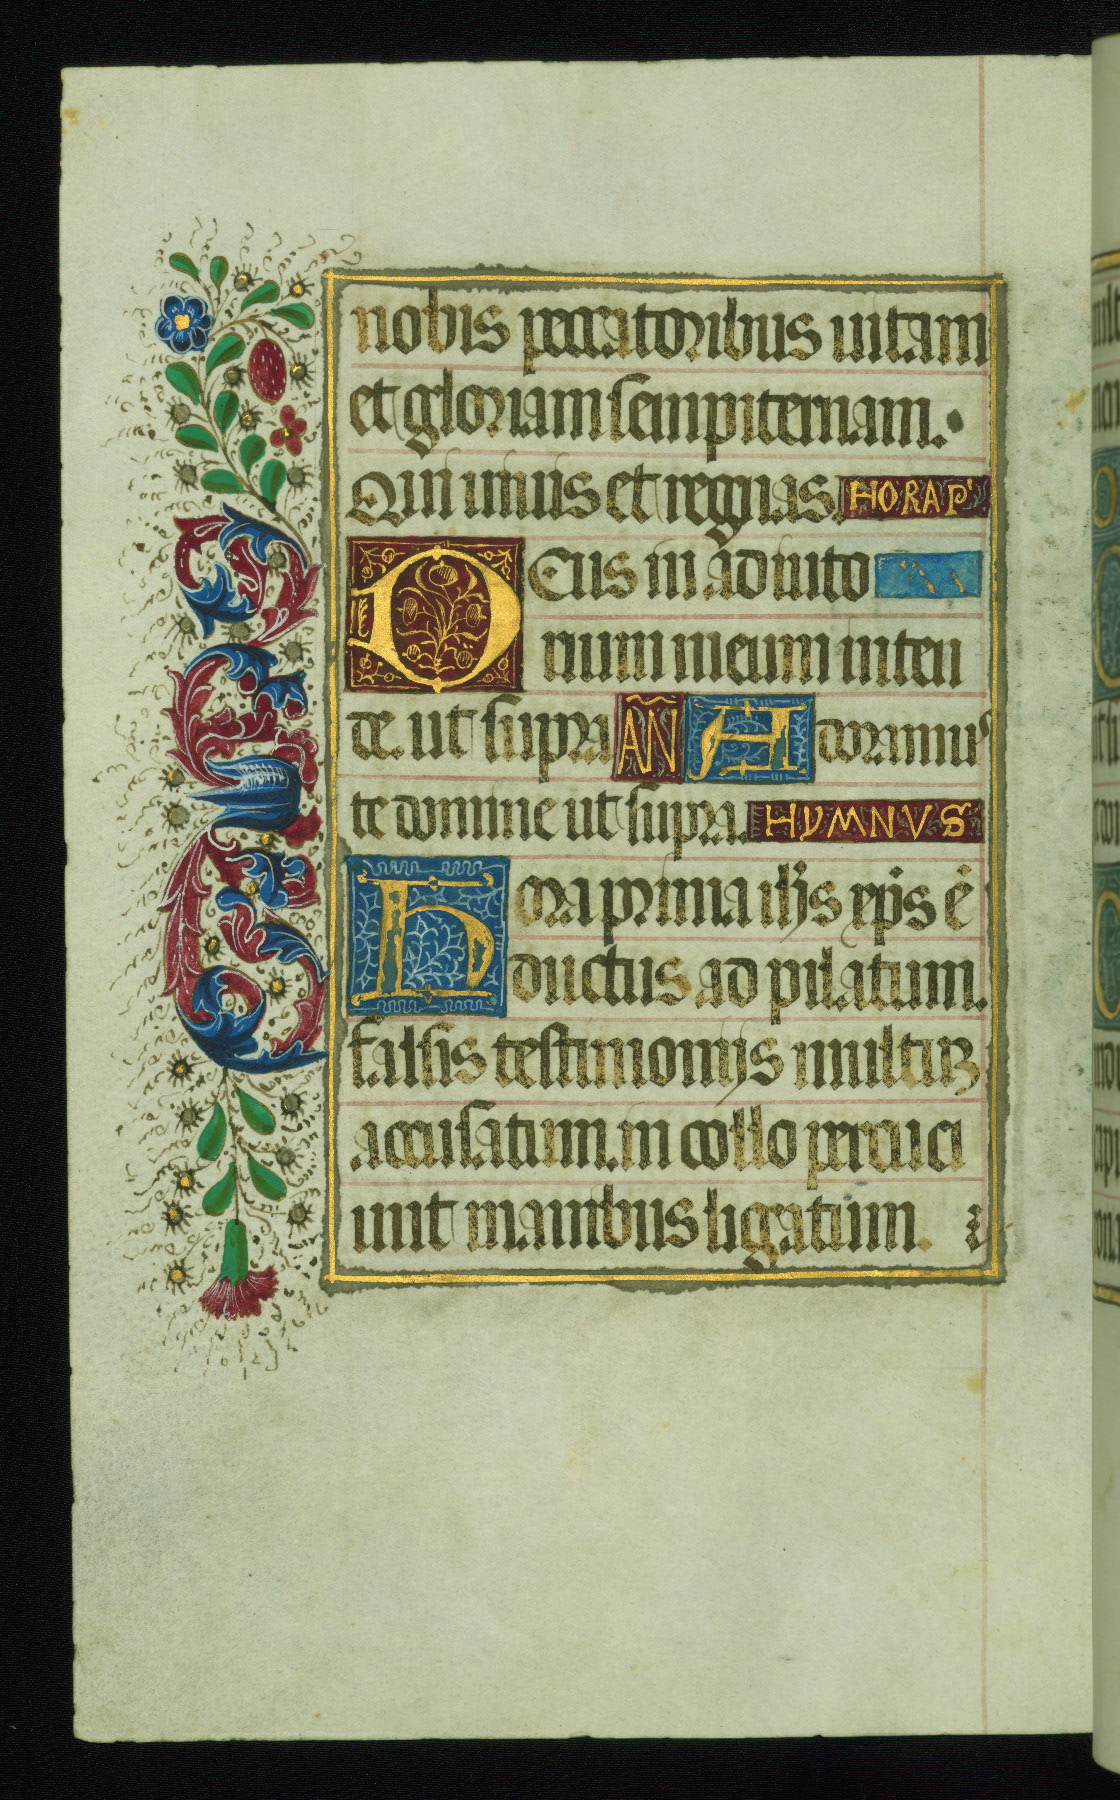 nobis peccatoribus uitam
et gloriam sempiternam.
Qui uiuis et regnas. HORA P'
Deus in adiuto
rium meum inten
de. ut supra AÑ Adoramus
te domine ut supra. HYMNVS
Hora prima ihs xps ē
ductus ad pilatum.
falsis testimonijs multū
accusatum. in collo percuci
unt manibus ligatum.